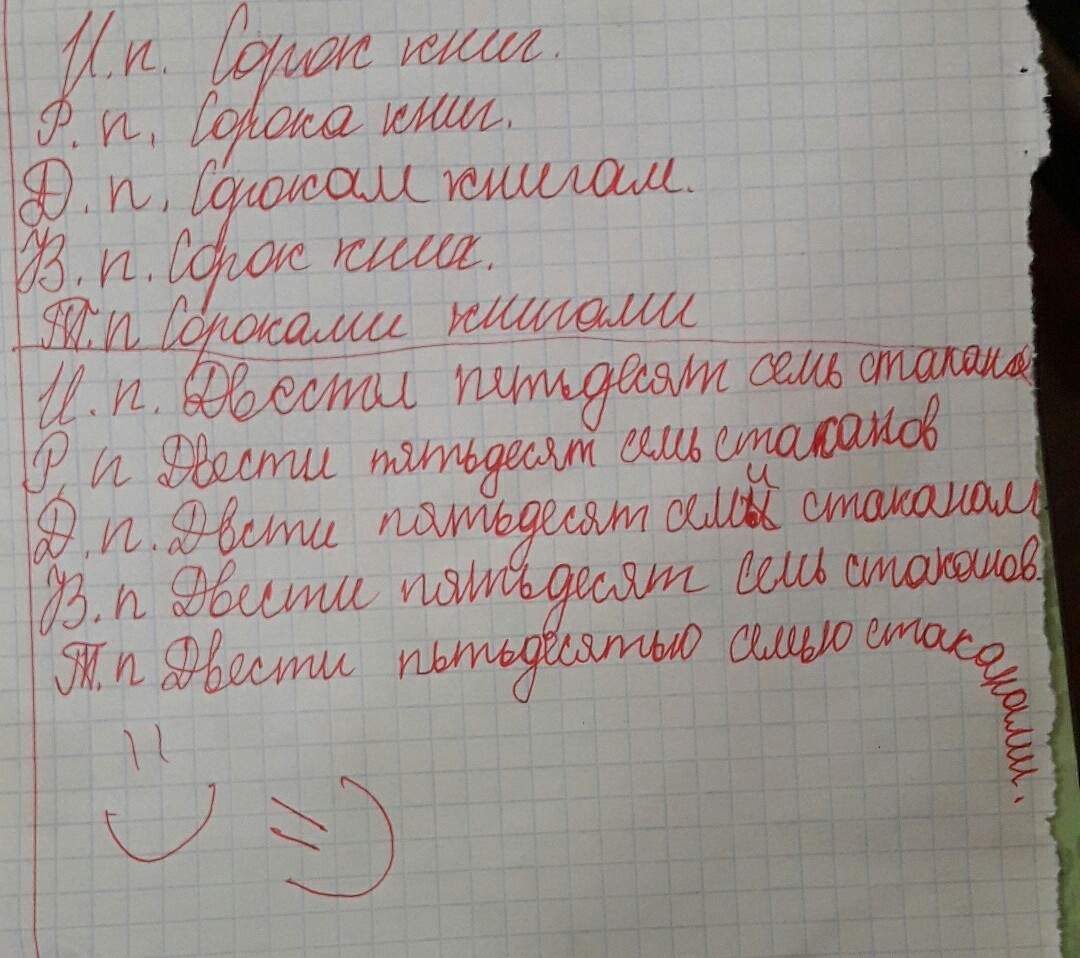 И.п. Сорок книг.
Р.п. Сорока книг.
Д.п. Сорокам книгам.
В.п. Сорок книг.
Т.п Сороками книгами
И.п. Двести пятьдесят семь стаканов
Р.п Двести пятьдесят семь стаканов
Д.п. Двсти пятьдесят семи стаканам
В.п Двести пятьдесят семь стаканов.
Т.п Двести пятьдесятью семью стаканами.